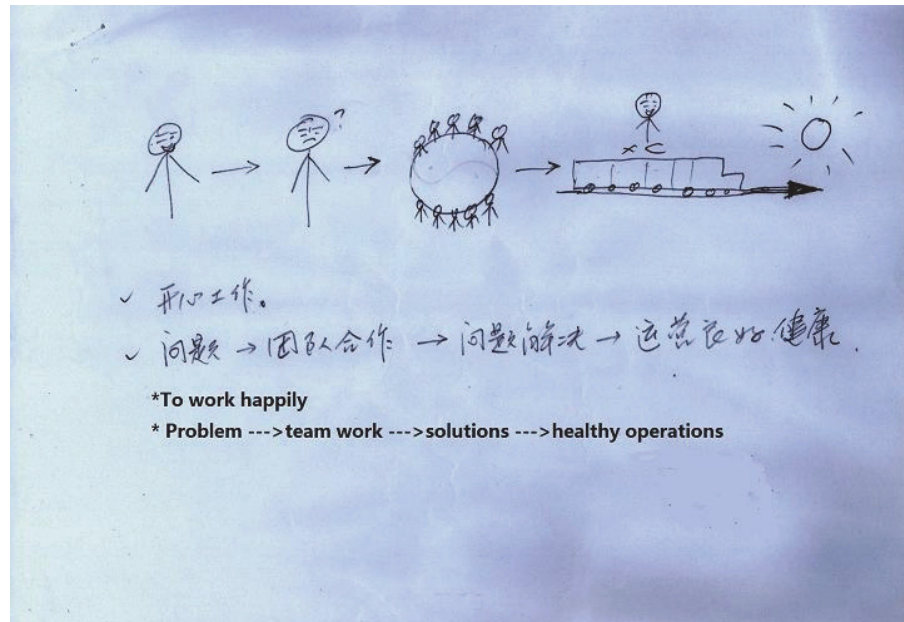 ?
XC
✓ 开心工作。
✓ 问题→团队合作→问题解决→运营良好健康.
*To work happily
* Problem --->team work --->solutions --->healthy operations